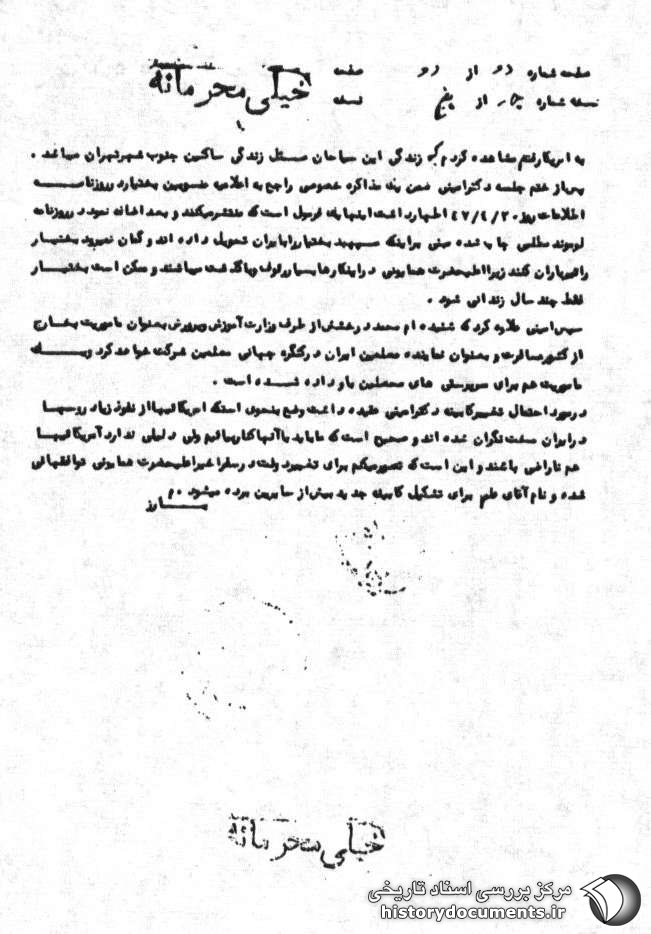 صفحه شماره دو از دو صفحه
خیلی محرمانه
نسخه شماره چهار از پنج نسخه
به امریکا رفتم مشاهده کردم که زندگی این سیاحان مثل زندگی ساکنین جنوب شهر تهران میباشد .
پس از ختم جلسه دکتر امینی ضمن یک مذاکره خصوصی راجع به اعلامیه منسوبین بختیار در روزنامه
اطلاعات روز ۴۷/۶/۲۰ اظهار داشت اینها یک فرمول است که منتشر میکنند و بعد اضافه نمود در روزنامه
لوموند مطلبی چاپ شده مبنی بر اینکه سپهبد بختیار را بایران تحویل داده اند و گمان نمیرود بختیار
را تیرباران کنند زیرا اعلیحضرت همایونی در اینکارها بسیار رئوف و با گذشت میباشند و ممکن است بختیار
فقط چند سال زندانی شود .
سپس امینی علاوه کرد که شنیده ام محمد درخشش از طرف وزارت آموزش و پرورش بعنوان ماموریت بخارج
از کشور مسافرت و بعنوان نماینده معلمین ایران در کنگره جهانی معلمین شرکت خواهد کرد و یک
ماموریت هم برای سرپرستی های محصلین باو داده شده است .
در مورد احتمال تغییر کابینه دکتر امینی عقیده داشت وضع بنحوی است که امریکائیها از نفوذ زیاد روسها
در ایران سخت نگران شده اند و صحیح است که ما باید با آنها کنار بیائیم ولی دلیلی ندارد آمریکائیها
هم ناراضی باشند و این است که تصور میکنم برای تغییر دولت در سفر اخیر اعلیحضرت همایونی توافقهائی
شده و نام آقای علم برای تشکیل کابینه جدید بیش از سایرین برده میشود .
خیلی محرمانه
مرکز بررسی اسناد تاریخی
historydocuments.ir